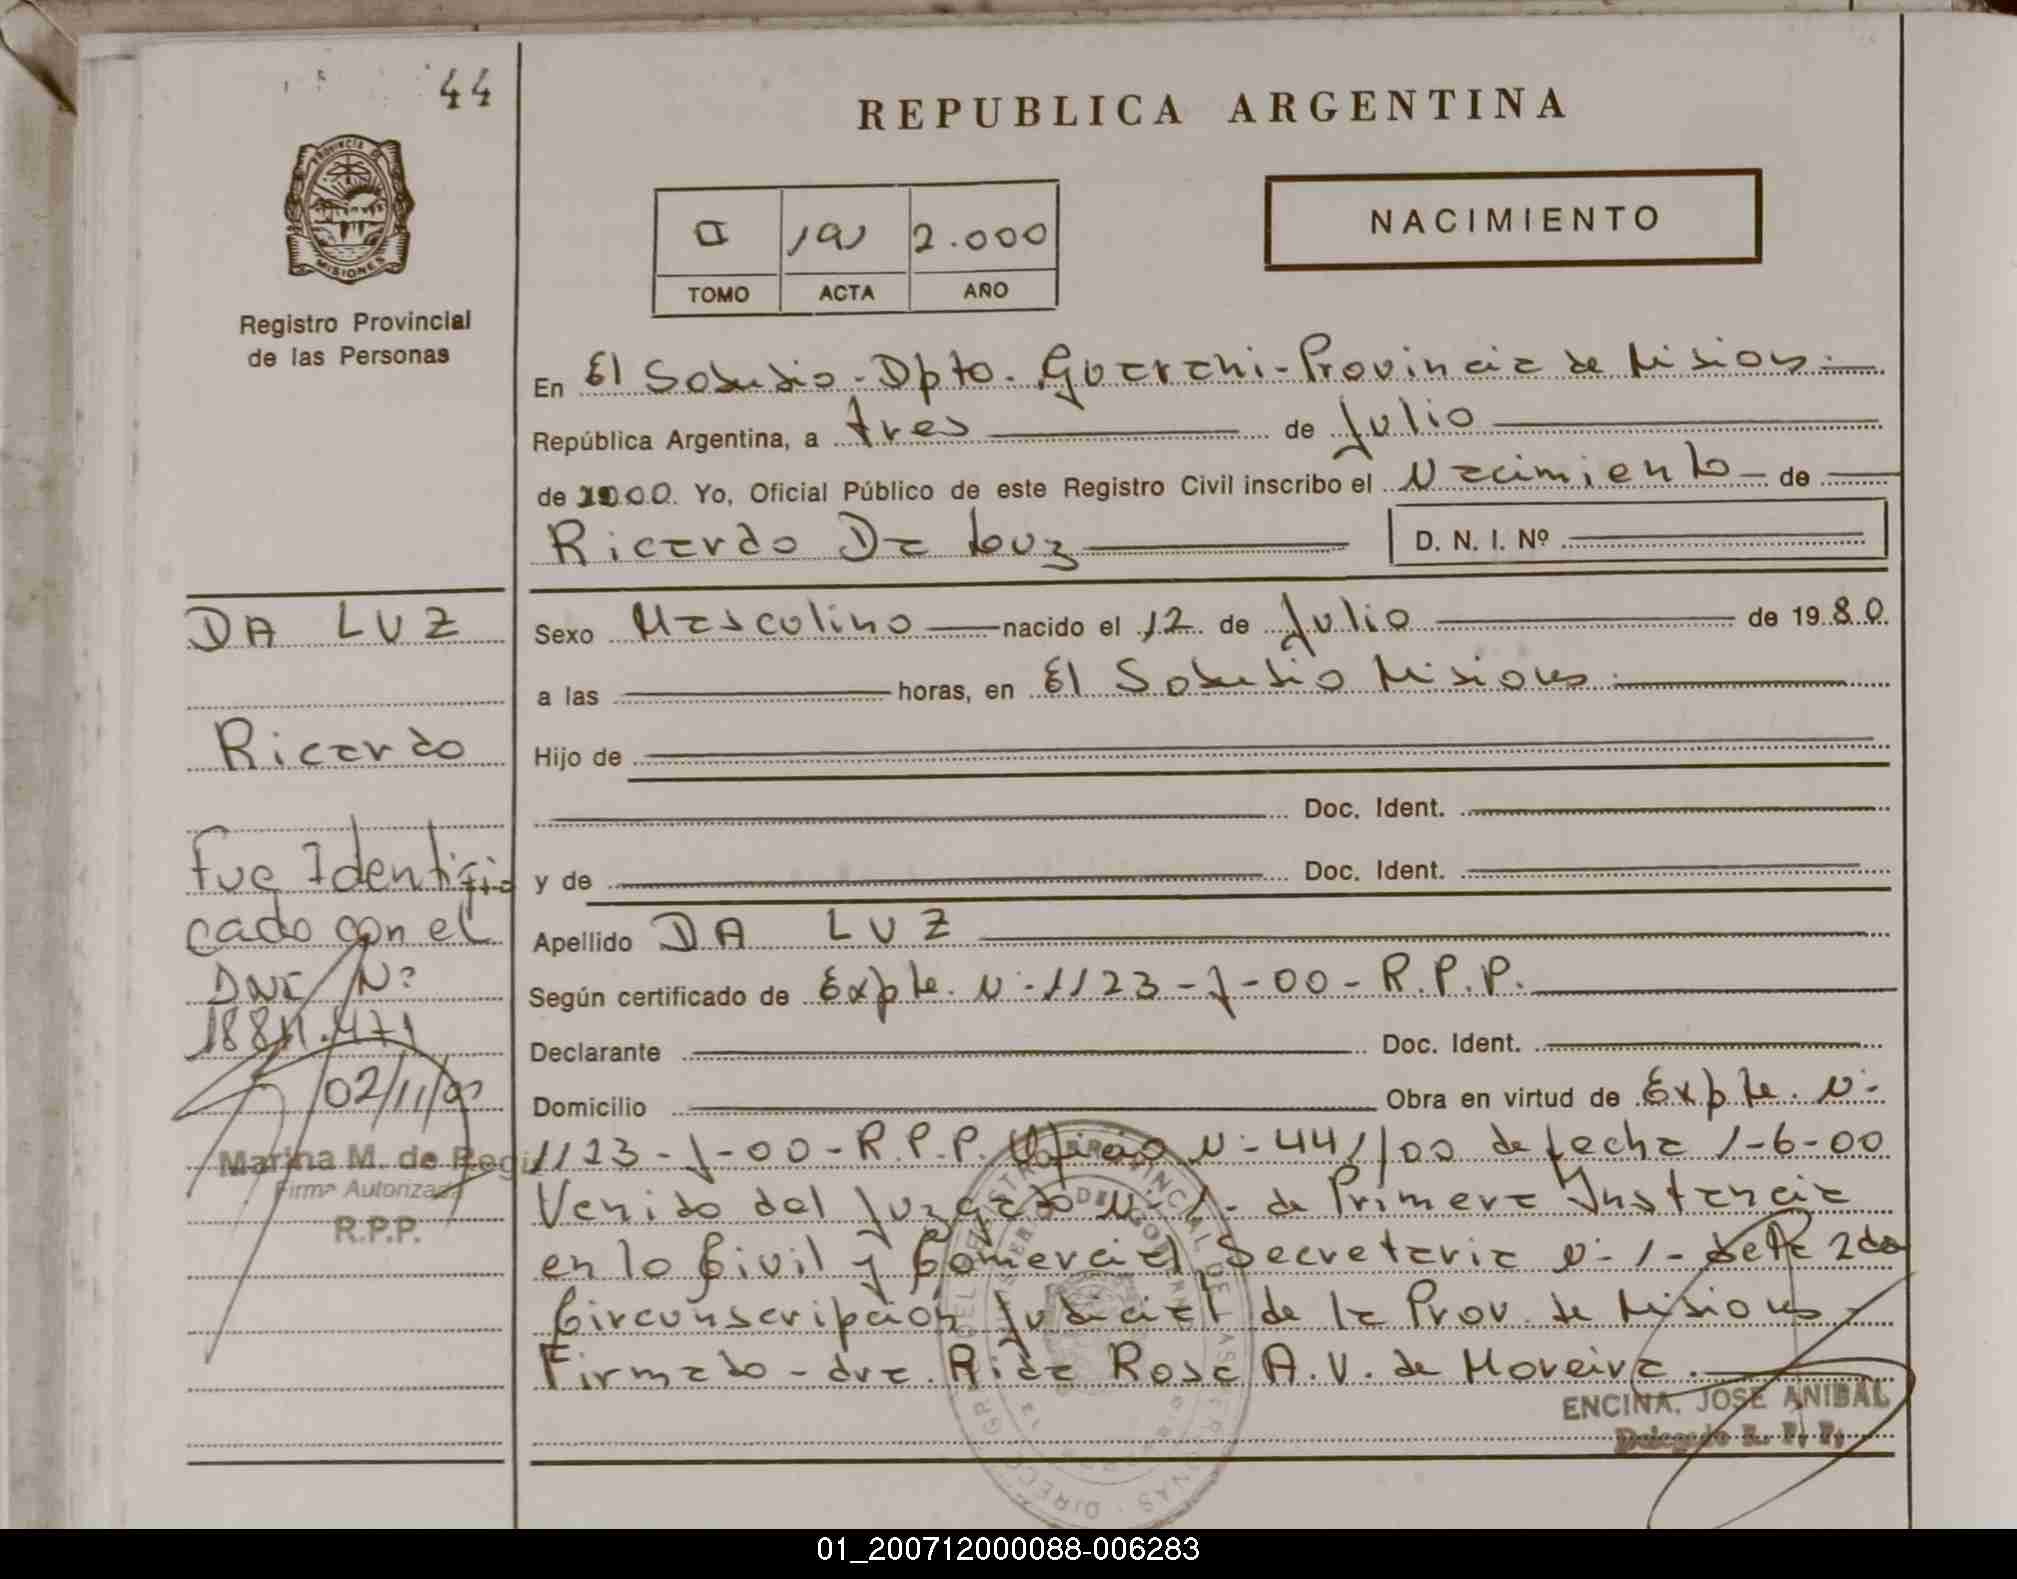 44
REPUBLICA ARGENTINA
PROVINCIA DE
MISIONES
Registro Provincial
de las Personas
II 191 2.000
TOMO ACTA AÑO
NACIMIENTO
En El Soberbio - Dpto. Guaraní - Provincia de Misiones.
República Argentina, a tres de Julio
de 2000. Yo, Oficial Público de este Registro Civil inscribo el Nacimiento de
Ricardo Da Luz D. N. I. Nº
DA LUZ
Ricardo
Sexo Masculino nacido el 12 de Julio de 1980.
a las horas, en El Soberbio Misiones.
Hijo de
Doc. Ident.
y de Doc. Ident.
Apellido DA LUZ
Según certificado de Expte. N- 1123-J-00-R.P.P.
Declarante Doc. Ident.
Domicilio Obra en virtud de Expte. N-
1123-J-00-R.P.P. Oficio N- 441/00 de fecha 1-6-00
Venido del Juzgado N-1- de Primera Instancia
en lo Civil y Comercial Secretaria N-1- de la 2da
Circunscripción Judicial de la Prov. de Misiones
Firmado - dra. Aida Rosa A.V. de Moreira.
ENCINA, JOSE ANIBAL
Delegado R. P. P.
Fue Identifi
cado con el
DNI Nº
02/11/
Marina M. de
Firma Autorizada
R.P.P.
01_200712000088-006283